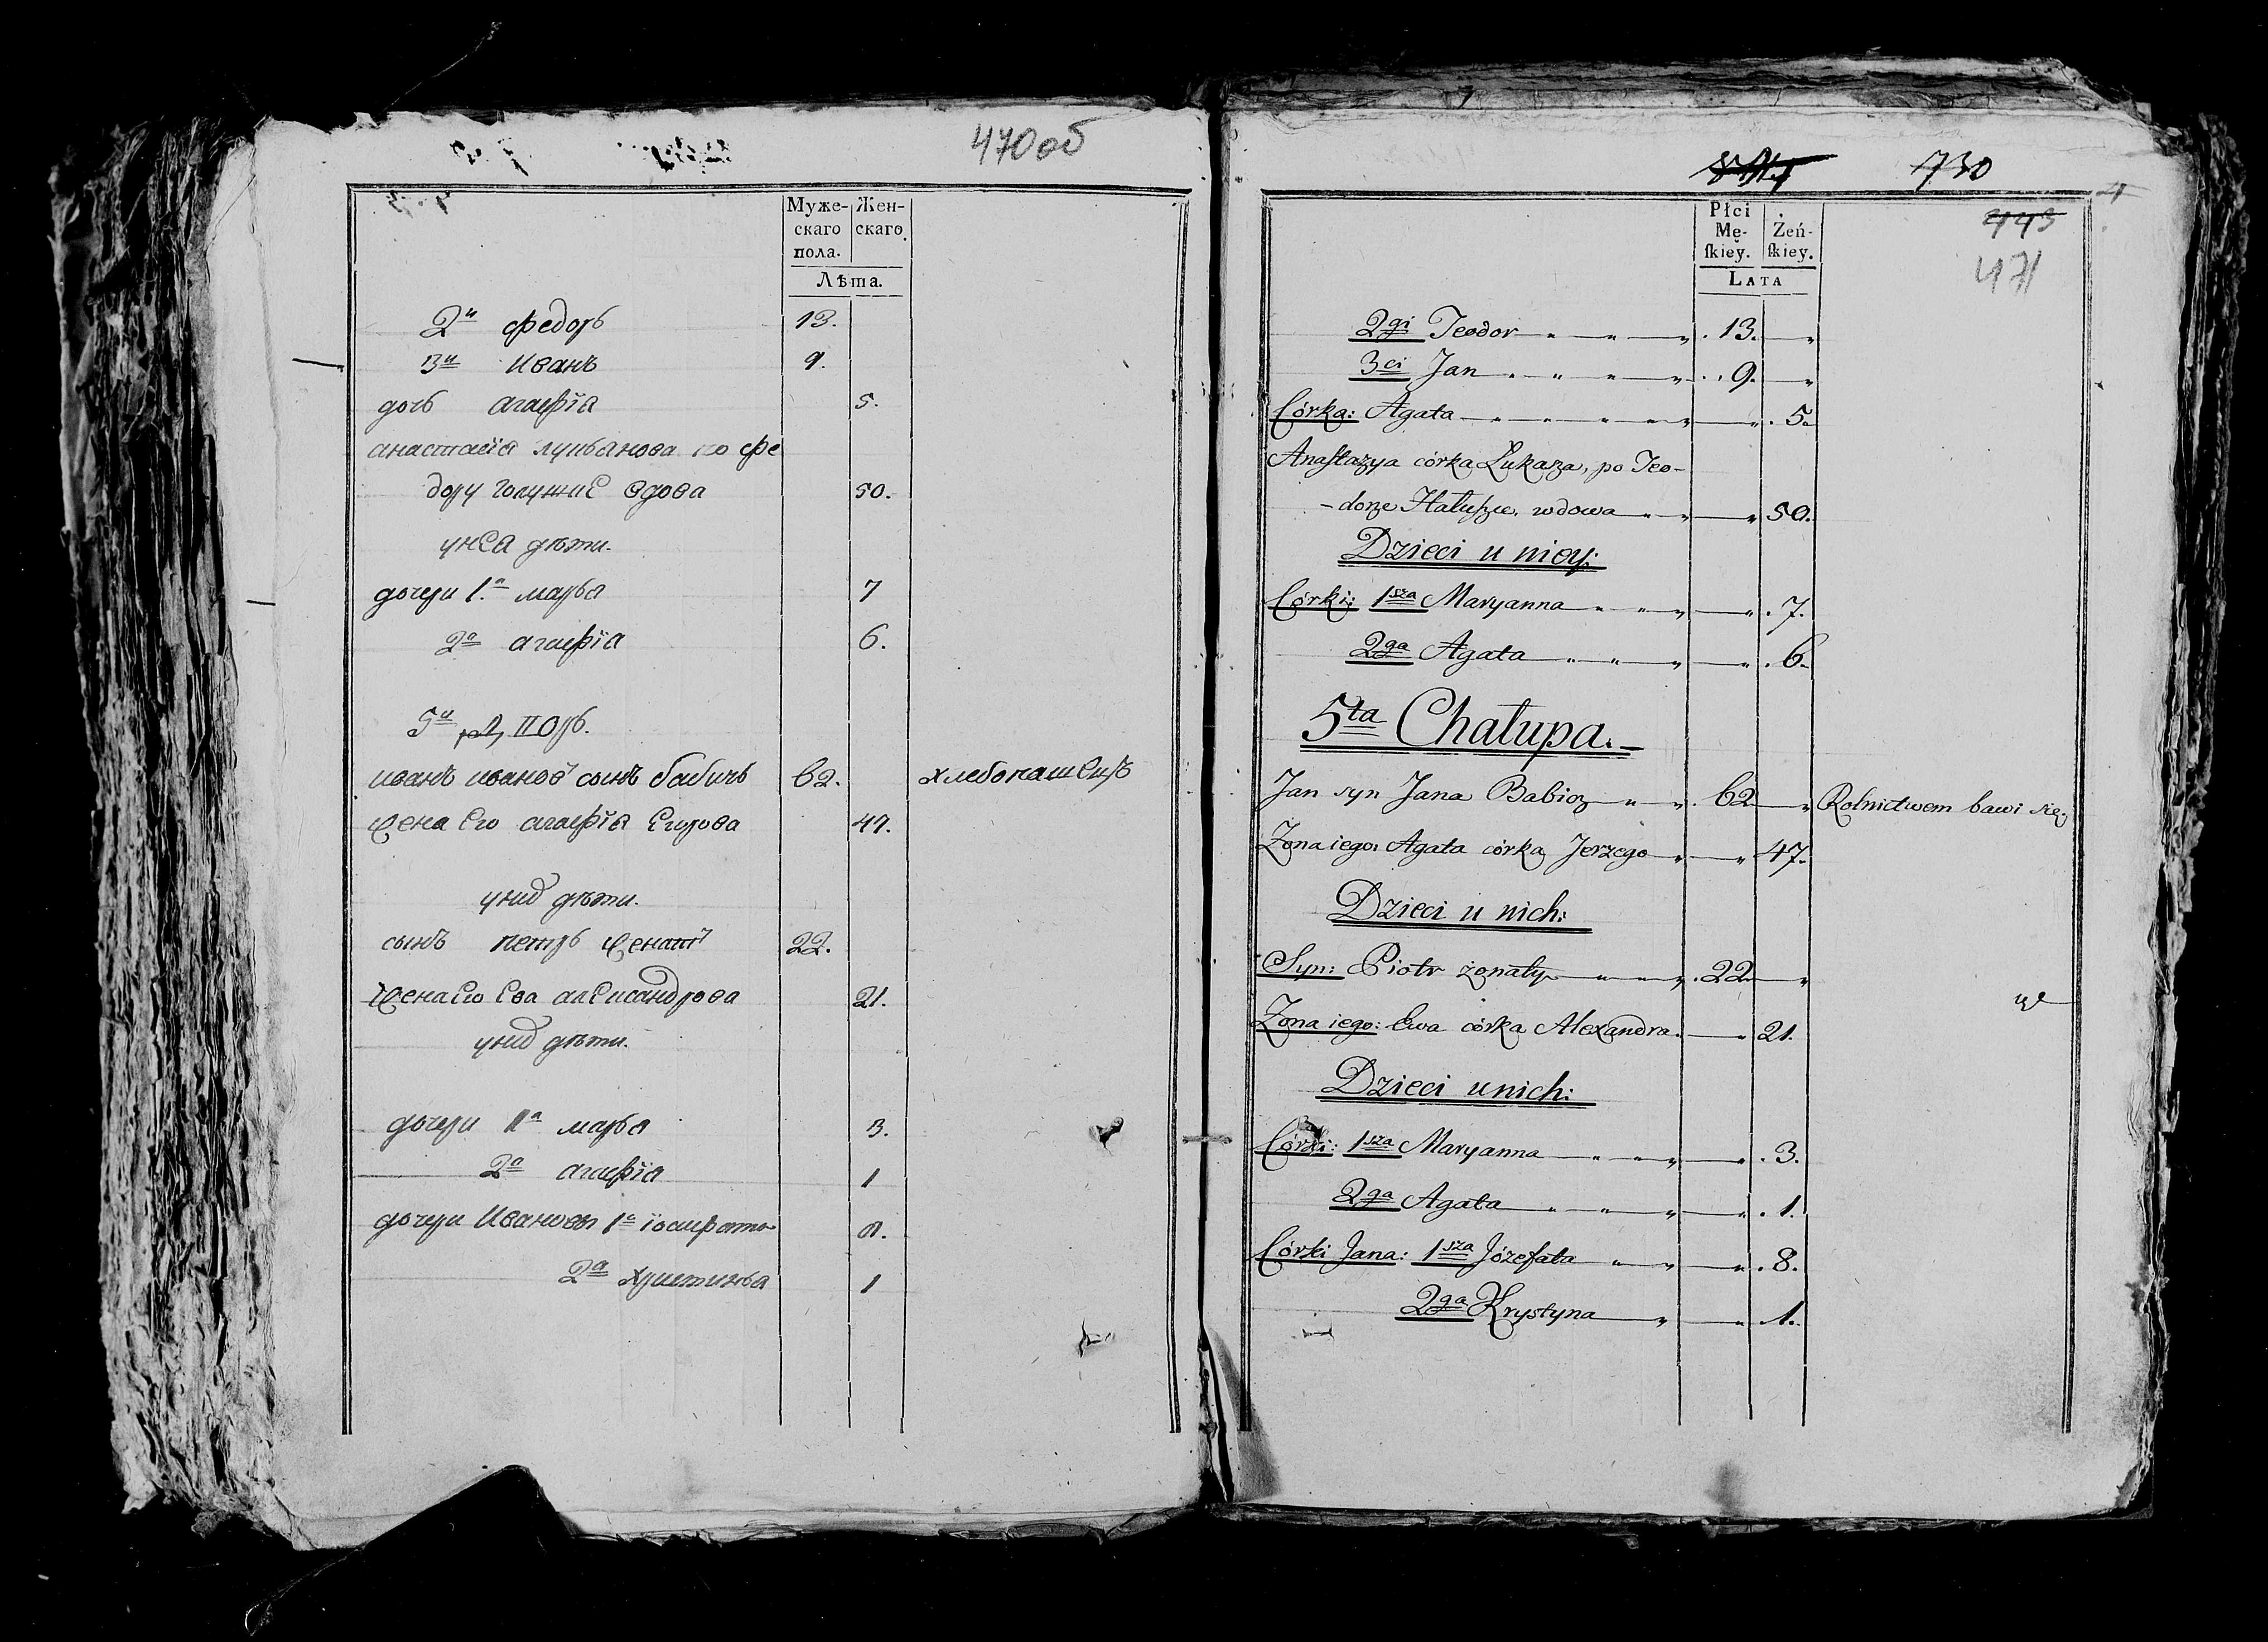 470об
Муже-
скаго
пола.
Жен-
скаго.
Лѣта.
2й Федоръ 13.
3й Иванъ 9.
дочь агафїя 5.
анастасїя лукьянова по фе
дору голушкѣ вдова 50.
у нея дѣти.
дочери 1.а марья 7
2а агафїя 6.
5й дворъ.
иванъ ивановъ сынъ бабичь 62. хлебопашецъ
жена его агафїя Егорова 47.
у них дѣти.
сынъ петръ женатъ 22.
жена его Ева александрова 21.
у них дѣти.
дочери 1а марья 3.
2а агафїя 1
дочери Ивановы 1а їосафата 8.
2а христинья 1
730
443
471
Płci
Mę-
ſkiey.
Żeń-
ſkiey.
LATA
2gi Teodor 13.
3ci Jan 9.
Córka: Agata 5.
Anaſtazya córka Łukasza, po Teo-
-dorze Hałuszce wdowa 50.
Dzieci u niey:
Córki: 1sza Maryanna 7.
2ga Agata 6.
5ta Chałupa.
Jan syn Jana Babicz 62 Rolnictwem bawi się
Żona iego: Agata córka Jerzego 47.
Dzieci u nich:
Syn: Piotr żonaty 22
Żona iego: Ewa córka Alexandra 21.
Dzieci u nich:
Córki: 1sza Maryanna 3.
2ga Agata 1.
Córki Jana: 1sza Józefata 8.
2ga Krystyna 1.